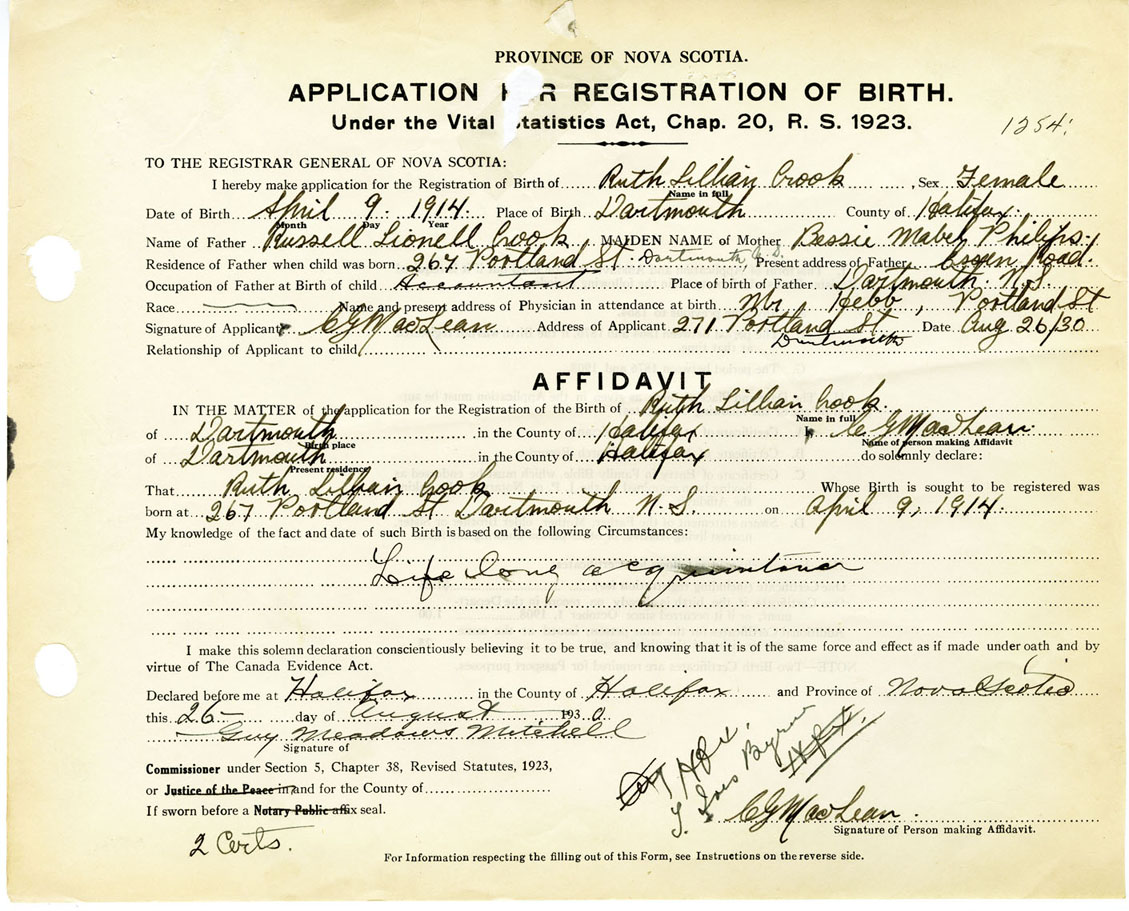 PROVINCE OF NOVA SCOTIA.
APPLICATION F R REGISTRATION OF BIRTH.
Under the Vital Statistics Act, Chap. 20, R. S. 1923.
1254
TO THE REGISTRAR GENERAL OF NOVA SCOTIA:
I hereby make application for the Registration of Birth of Ruth Lillian Crook, Sex Female
Name in full
Date of Birth April 9. 1914. Place of Birth Dartmouth County of Halifax.
Month Day Year
Name of Father Russell Lionell Crook MAIDEN NAME of Mother Bessie Mabel Philips.
Residence of Father when child was born 267 Portland St. Dartmouth, N.S. Present address of Father Road.
Occupation of Father at Birth of child Accountant Place of birth of Father Dartmouth. N.S.
Race Name and present address of Physician in attendance at birth Mr. Hebb, Portland St
Signature of Applicant CG MacLean Address of Applicant 271 Portland St Date Aug 26/30
Dartmouth
Relationship of Applicant to child
AFFIDAVIT
IN THE MATTER of the application for the Registration of the Birth of Ruth Lillian Crook.
Name in full
of Dartmouth in the County of Halifax I, CG MacLean
Birth place Name of person making Affidavit
of Dartmouth in the County of Halifax do solemnly declare:
Present residence
That Ruth Lillian Crook Whose Birth is sought to be registered was
born at 267 Portland St Dartmouth N.S. on April 9, 1914.
My knowledge of the fact and date of such Birth is based on the following Circumstances:
Life long acquaintance
I make this solemn declaration conscientiously believing it to be true, and knowing that it is of the same force and effect as if made under oath and by
virtue of The Canada Evidence Act.
Declared before me at Halifax in the County of Halifax and Province of Nova Scotia
this 26 day of August 1930.
Guy Meadows Mitchell
Signature of
Commissioner under Section 5, Chapter 38, Revised Statutes, 1923,
or Justice of the Peace in and for the County of
If sworn before a Notary Public affix seal.
CG MacLean.
Signature of Person making Affidavit.
2 Certs.
For Information respecting the filling out of this Form, see Instructions on the reverse side.